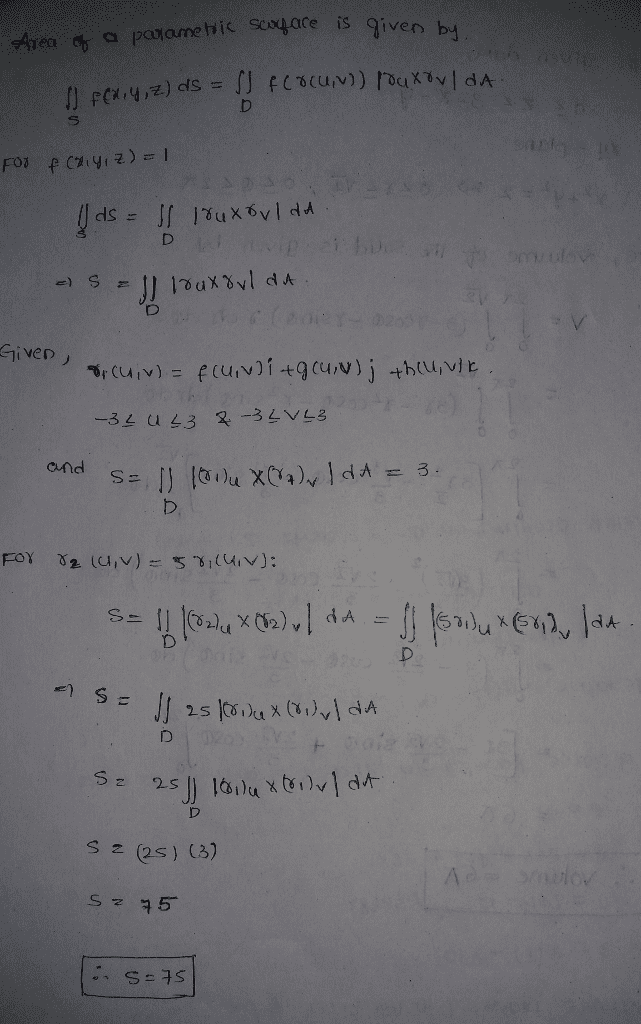 Area of a parametric surface is given by.
∬_S f(x,y,z) ds = ∬_D f(r(u,v)) |ru×rv| dA
For f(x,y,z) = 1
∬_S ds = ∬_D |ru×rv| dA.
=) S = ∬_D |ru×rv| dA.
Given,
r₁(u,v) = f(u,v)i + g(u,v)j + h(u,v)k.
-3≤u≤3 & -3≤v≤3
and S = ∬_D |(r₁)u × (r₁)v| dA = 3.
For r₂(u,v) = 5r₁(u,v):
S = ∬_D |(r₂)u × (r₂)v| dA = ∬_D |(5r₁)u × (5r₁)v| dA.
=) S = ∬_D 25 |(r₁)u × (r₁)v| dA
S = 25 ∬_D |(r₁)u × (r₁)v| dA
S = (25) (3)
S = 75
∴ S = 75